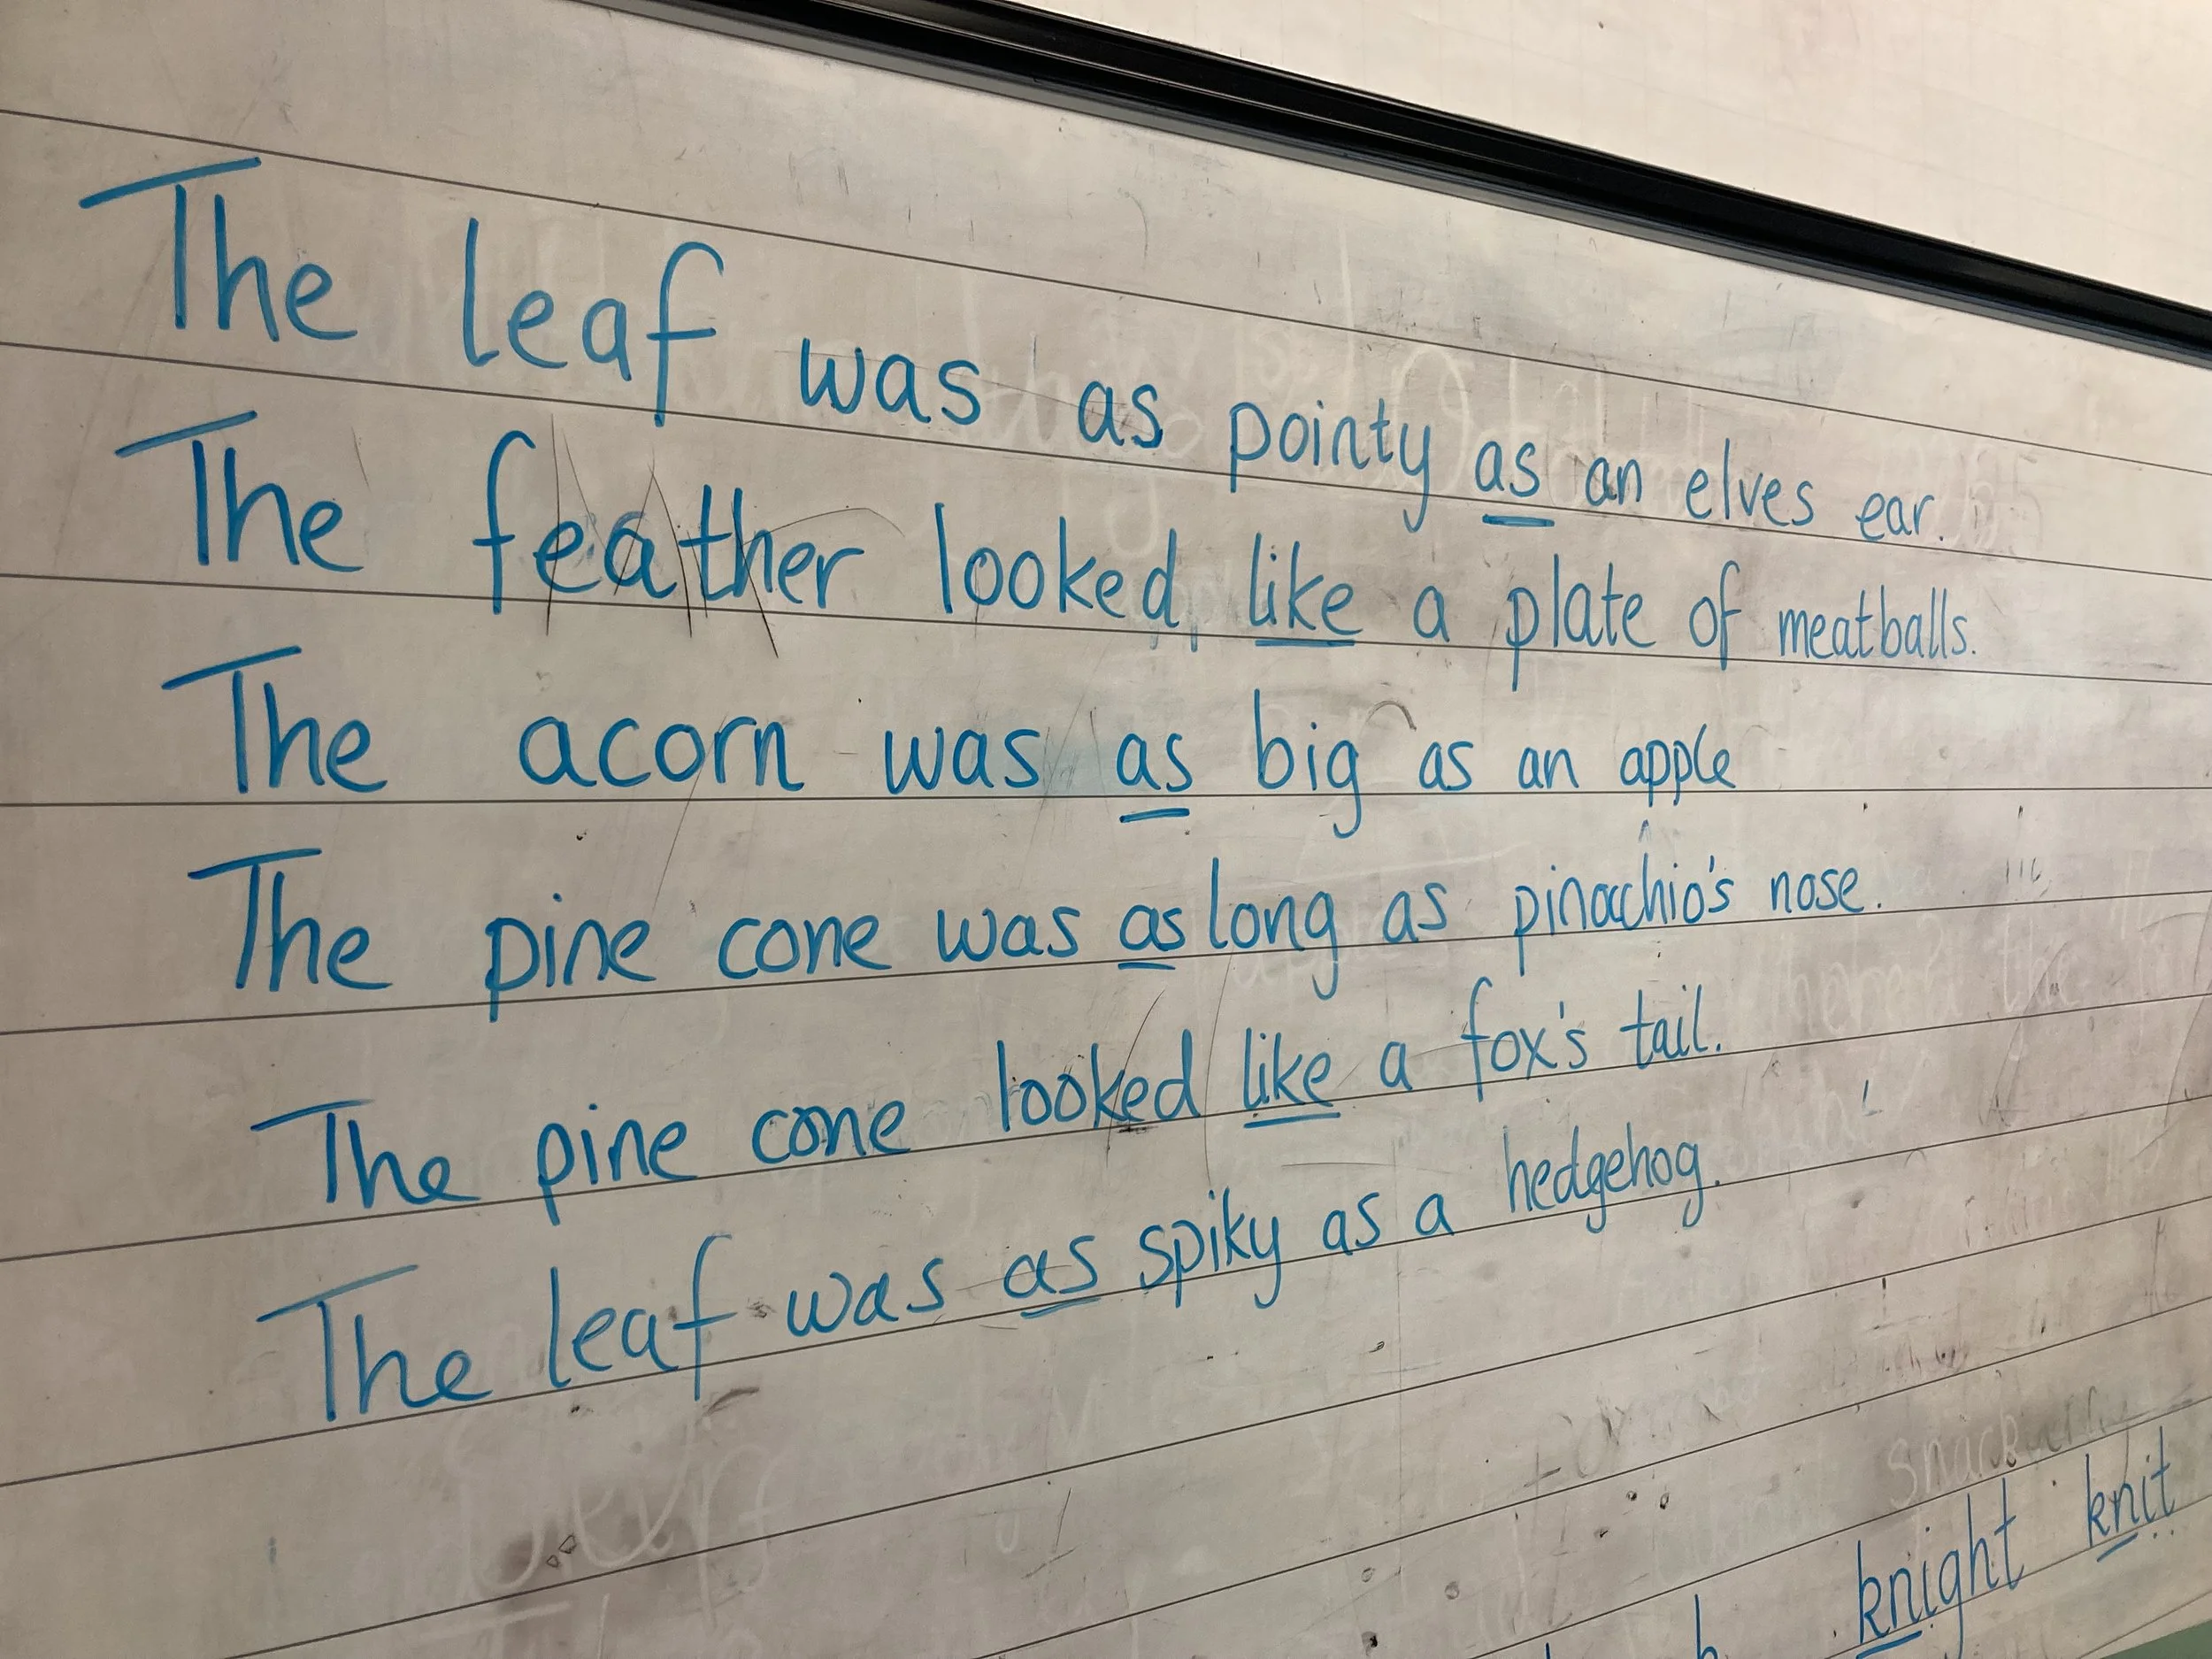 The leaf was as pointy as an elves ear.
The feather looked like a plate of meatballs.
The acorn was as big as an apple
The pine cone was as long as pinacchio's nose.
The pine cone looked like a fox's tail.
The leaf was as spiky as a hedgehog.
knight knit